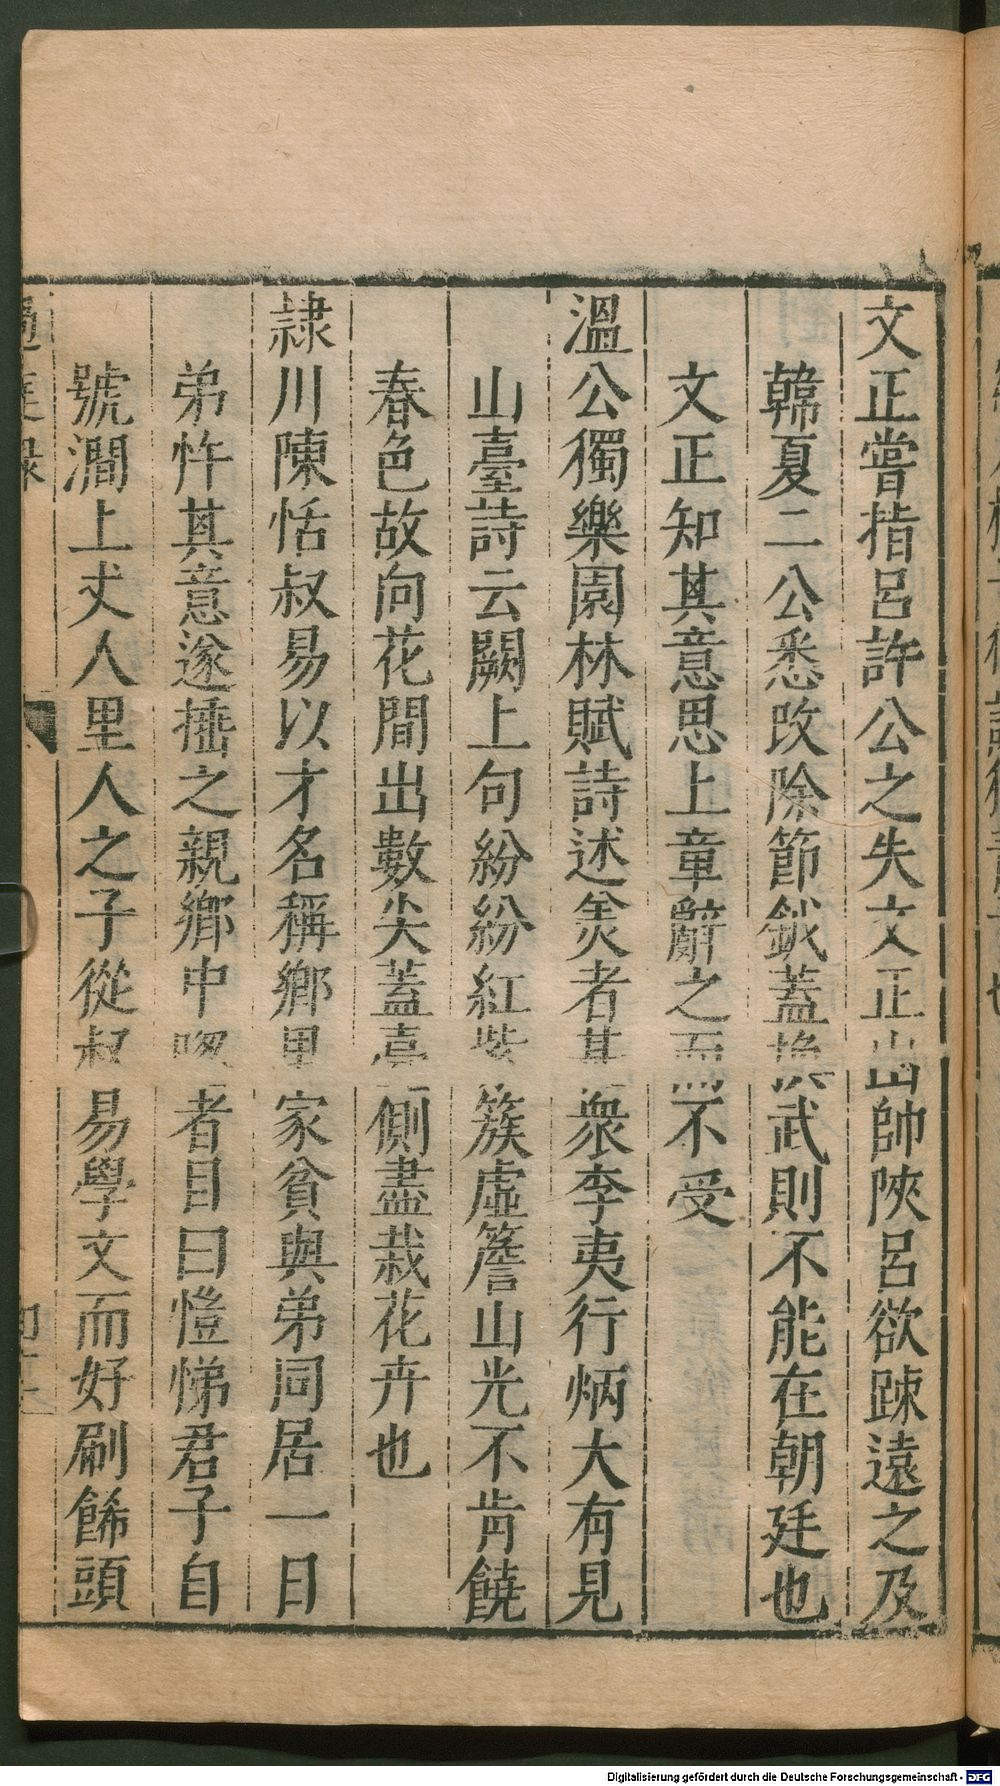 文正嘗指呂許公之失文正出帥陝呂欲踈遠之及
韓夏二公悉改除節鉞蓋換武則不能在朝廷也
文正知其意思上章辭之而不受
溫公獨樂園林賦詩述羙者甚衆李夷行炳大有見
山臺詩云闕上句紛紛紅紫簇虛簷山光不肯饒
春色故向花間出數尖蓋臺側盡栽花卉也
隷川陳恬叔易以才名稱鄉里家貧與弟同居一日
弟忤其意遂捶之親鄉中者目曰愷悌君子自
號澗上丈人里人之子從叔易學文而好刷餙頭
過庭録
Digitalisierung gefördert durch die Deutsche Forschungsgemeinschaft - DFG